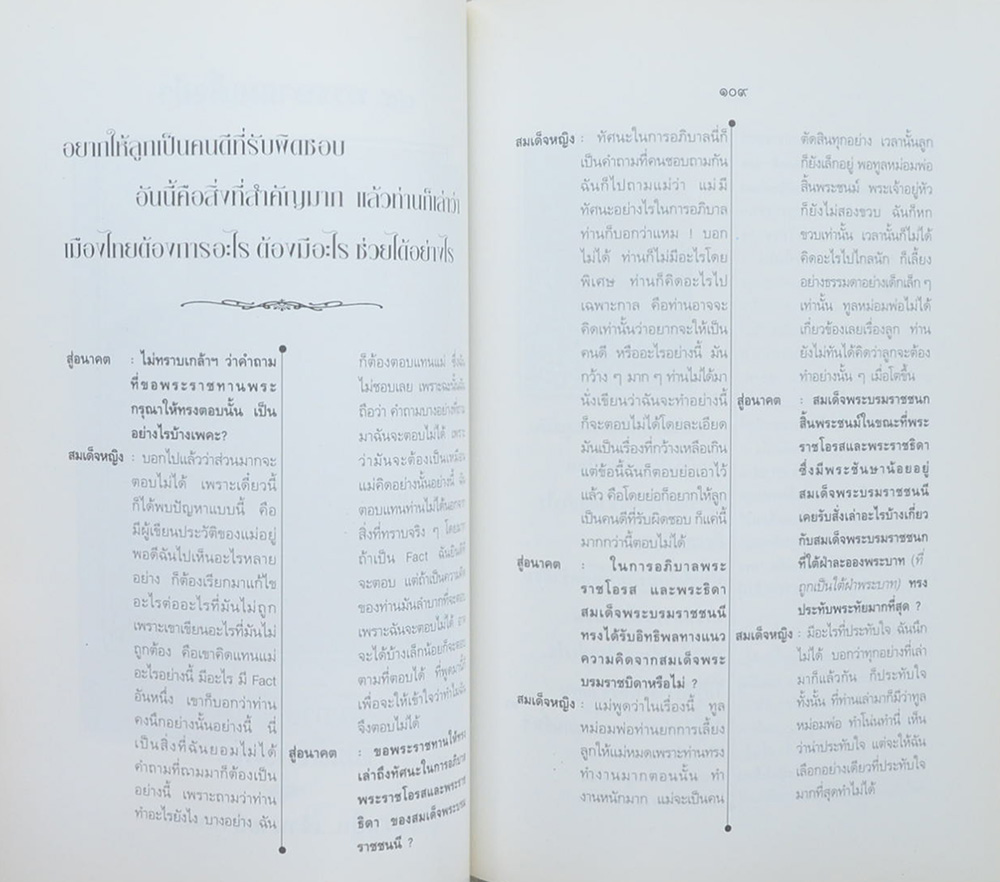 อยากให้ลูกเป็นคนดีที่รับผิดชอบ
อันนี้คือสิ่งที่สำคัญมาก แล้วท่านก็เล่าว่า
เมืองไทยต้องการอะไร ต้องมีอะไร ช่วยได้อย่างไร
สู่อนาคต : ไม่ทราบเกล้าฯ ว่าคำถาม
ที่ขอพระราชทานพระ
กรุณาให้ทรงตอบนั้น เป็น
อย่างไรบ้างเพคะ?
สมเด็จหญิง : บอกไปแล้วว่าส่วนมากจะ
ตอบไม่ได้ เพราะเดี๋ยวนี้
ก็ได้พบปัญหาแบบนี้ คือ
มีผู้เขียนประวัติของแม่อยู่
พอดีฉันไปเห็นอะไรหลาย
อย่าง ก็ต้องเรียกมาแก้ไข
อะไรต่ออะไรที่มันไม่ถูก
เพราะเขาเขียนอะไรที่มันไม่
ถูกต้อง คือเขาคิดแทนแม่
อะไรอย่างนี้ มีอะไร มี Fact
อันหนึ่ง เขาก็บอกว่าท่าน
คงนึกอย่างนั้นอย่างนี้ นี่
เป็นสิ่งที่ฉันยอมไม่ได้
คำถามที่ถามมาก็ต้องเป็น
อย่างนี้ เพราะถามว่าท่าน
ทำอะไรยังไง บางอย่าง ฉัน
ก็ต้องตอบแทนแม่ ซึ่งฉัน
ไม่ชอบเลย เพราะฉะนั้นฉัน
ถือว่า คำถามบางอย่างที่ถาม
มาฉันจะตอบไม่ได้ เพราะ
ว่ามันจะต้องเป็นเหมือน
แม่คิดอย่างนั้นอย่างนี้ ฉัน
ตอบแทนท่านไม่ได้นอกจาก
สิ่งที่ทราบจริง ๆ โดยมาก
ถ้าเป็น Fact ฉันยินดีที่
จะตอบ แต่ถ้าเป็นความคิด
ของท่านมันลำบากที่จะตอบ
เพราะฉันจะตอบไม่ได้ อาจ
จะได้บ้างเล็กน้อยก็จะตอบ
ตามที่ตอบได้ ที่พูดมานี้ก็
เพื่อจะให้เข้าใจว่าทำไมฉัน
จึงตอบไม่ได้
สู่อนาคต : ขอพระราชทานให้ทรง
เล่าถึงทัศนะในการอภิบาล
พระราชโอรสและพระราช
ธิดา ของสมเด็จพระบรม
ราชชนนี ?
๑๐๙
สมเด็จหญิง : ทัศนะในการอภิบาลนี่ก็
เป็นคำถามที่คนชอบถามกัน
ฉันก็ไปถามแม่ว่า แม่มี
ทัศนะอย่างไรในการอภิบาล
ท่านก็บอกว่าแหม ! บอก
ไม่ได้ ท่านก็ไม่มีอะไรโดย
พิเศษ ท่านก็คิดอะไรไป
เฉพาะกาล คือท่านอาจจะ
คิดเท่านั้นว่าอยากจะให้เป็น
คนดี หรืออะไรอย่างนี้ มัน
กว้าง ๆ มาก ๆ ท่านไม่ได้มา
นั่งเขียนว่าฉันจะทำอย่างนี้
ก็จะตอบไม่ได้โดยละเอียด
มันเป็นเรื่องที่กว้างเหลือเกิน
แต่ข้อนี้ฉันก็ตอบย่อเอาไว้
แล้ว คือโดยย่อก็อยากให้ลูก
เป็นคนดีที่รับผิดชอบ ก็แค่นี้
มากกว่านี้ตอบไม่ได้
สู่อนาคต : ในการอภิบาลพระ
ราชโอรส และพระธิดา
สมเด็จพระบรมราชชนนี
ทรงได้รับอิทธิพลทางแนว
ความคิดจากสมเด็จพระ
บรมราชบิดาหรือไม่ ?
สมเด็จหญิง : แม่พูดว่าในเรื่องนี้ ทูล
หม่อมพ่อท่านยกการเลี้ยง
ลูกให้แม่หมดเพราะท่านทรง
ทำงานมากตอนนั้น ทำ
งานหนักมาก แม่จะเป็นคน
ตัดสินทุกอย่าง เวลานั้นลูก
ก็ยังเล็กอยู่ พอทูลหม่อมพ่อ
สิ้นพระชนม์ พระเจ้าอยู่หัว
ก็ยังไม่สองขวบ ฉันก็หก
ขวบเท่านั้น เวลานั้นก็ไม่ได้
คิดอะไรไปไกลนัก ก็เลี้ยง
อย่างธรรมดาอย่างเด็กเล็ก ๆ
เท่านั้น ทูลหม่อมพ่อไม่ได้
เกี่ยวข้องเลยเรื่องลูก ท่าน
ยังไม่ทันได้คิดว่าลูกจะต้อง
ทำอย่างนั้น ๆ เมื่อโตขึ้น
สู่อนาคต : สมเด็จพระบรมราชชนก
สิ้นพระชนม์ในขณะที่พระ
ราชโอรสและพระราชธิดา
ซึ่งมีพระชันษาน้อยอยู่
สมเด็จพระบรมราชชนนี
เคยรับสั่งเล่าอะไรบ้างเกี่ยว
กับสมเด็จพระบรมราชชนก
ที่ใต้ฝ่าละอองพระบาท (ที่
ถูกเป็นใต้ฝ่าพระบาท) ทรง
ประทับพระทัยมากที่สุด ?
สมเด็จหญิง : มีอะไรที่ประทับใจ ฉันนึก
ไม่ได้ บอกว่าทุกอย่างที่เล่า
มาก็แล้วกัน ก็ประทับใจ
ทั้งนั้น ที่ท่านเล่ามาก็มีว่าทูล
หม่อมพ่อ ทำโน่นทำนี่ เห็น
ว่าน่าประทับใจ แต่จะให้ฉัน
เลือกอย่างเดียวที่ประทับใจ
มากที่สุดทำไม่ได้